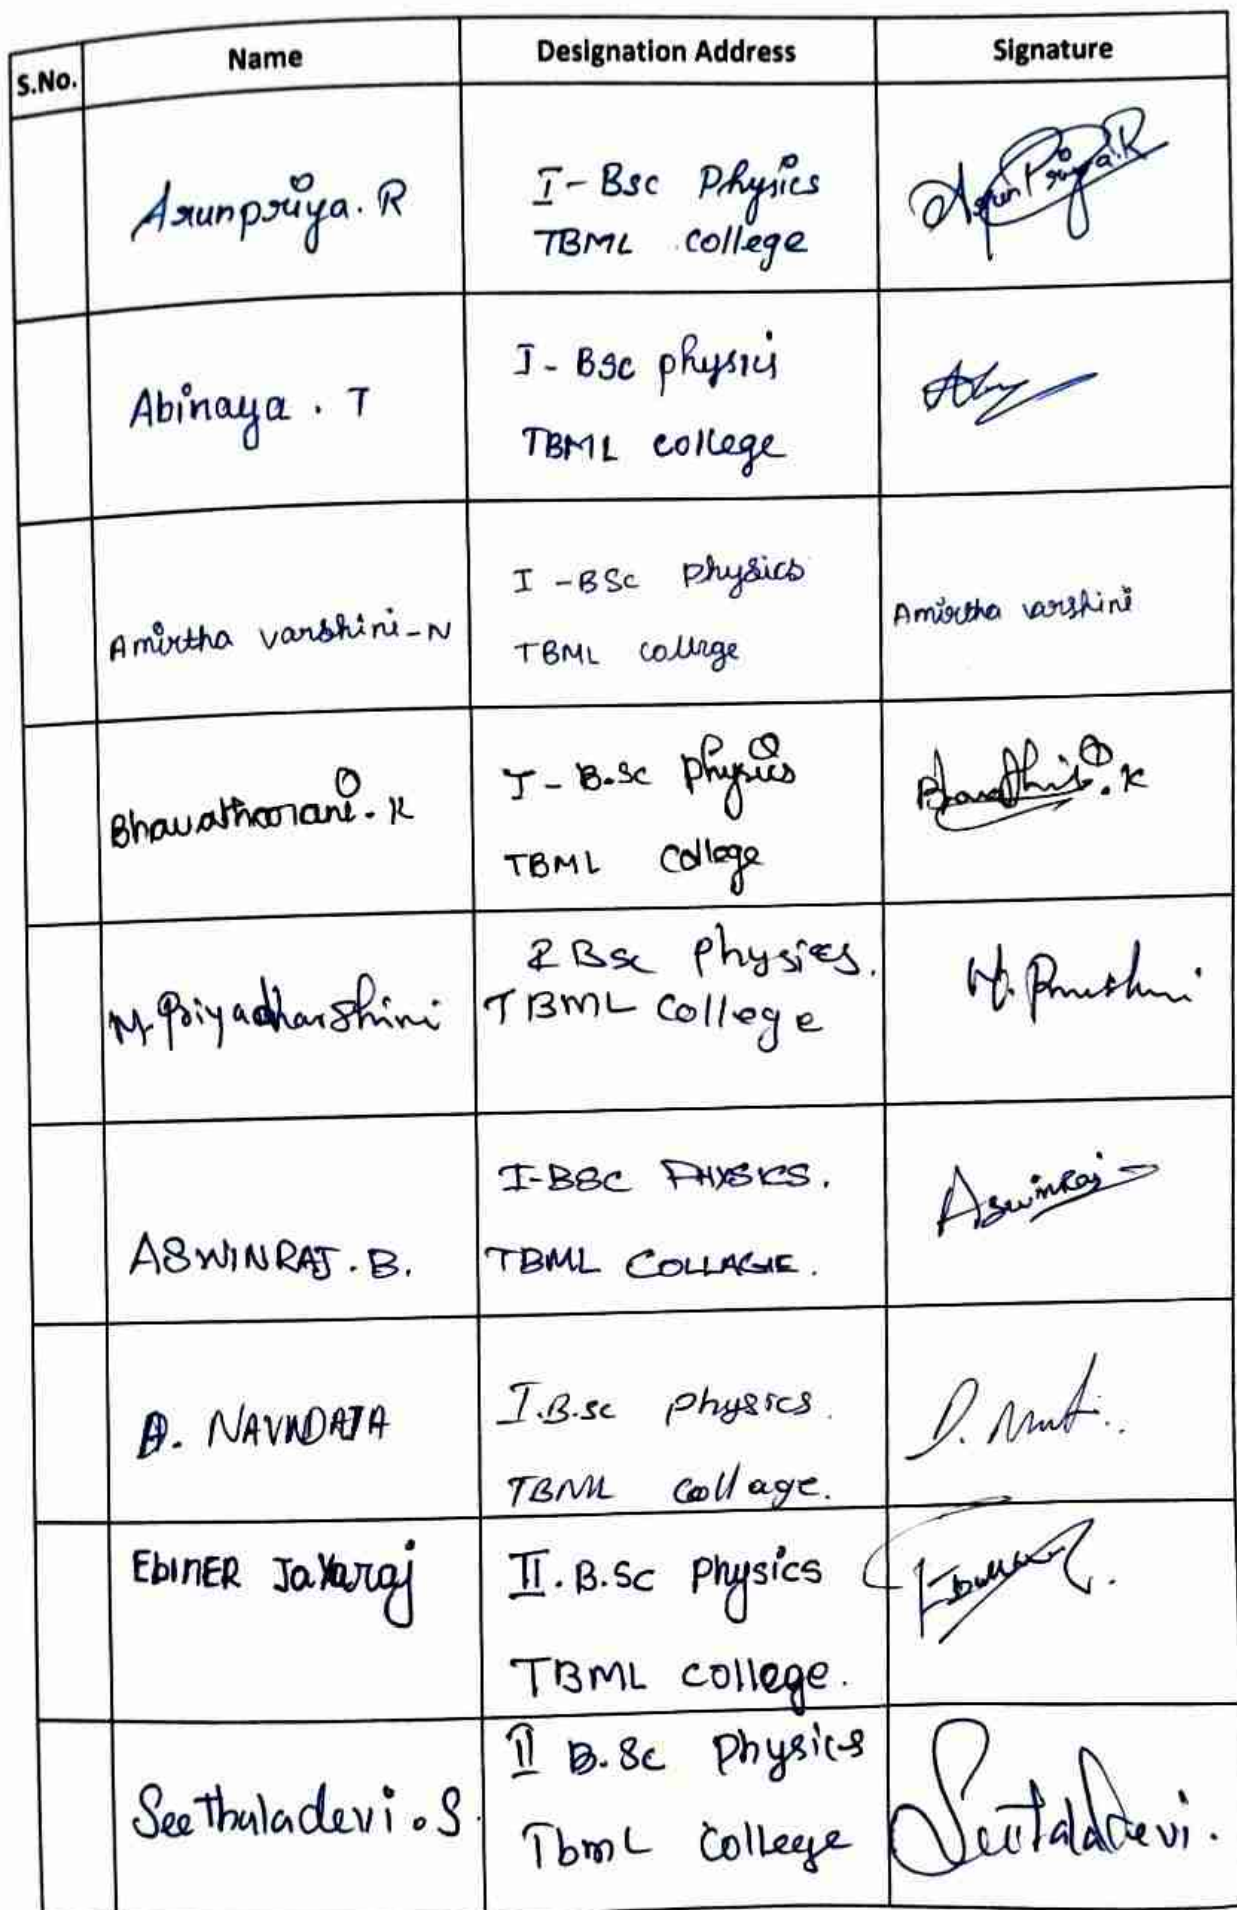 S.No. Name Designation Address Signature
Arunpriya. R
I - Bsc Physics
TBML college
ArunPriya.R
Abinaya . T
I - Bsc physics
TBML college
Amirtha varshini - N
I - BSc physics
TBML college
Amirtha varshini
I - B.sc physics
TBML college
M. Priyadharshini
Bsc Physics.
TBML College
ASWINRAJ . B.
I-BSC PHYSICS.
TBML COLLAGE.
Aswinraj
I.B.sc physics.
TBML collage.
EbinER JaYaraj
II. B.Sc Physics
TBML college.
Seethaladevi . S
II B.Sc Physics
TbmL College
Seetaladevi.